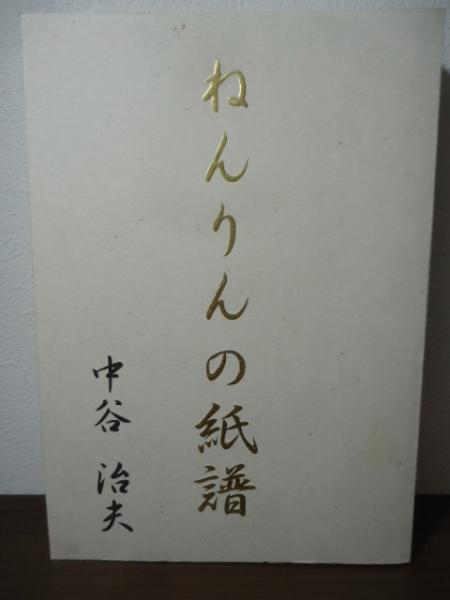 ねんりんの紙譜
中谷 治夫